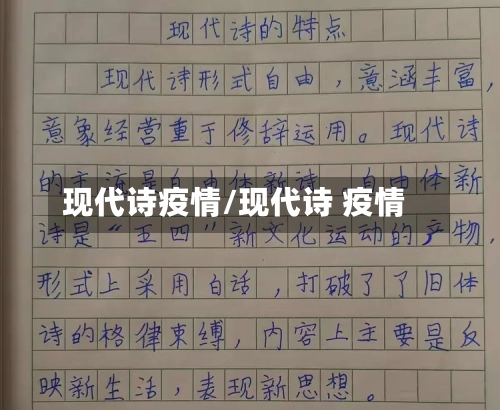 现代诗的特点
现代诗形式自由，意涵丰富，
意象经营重于修辞运用。现代诗
的主流是自由体新诗，自由体新
现代诗疫情/现代诗 疫情
诗是“五四”新文化运动的产物，
形式上采用白话，打破了了旧体
诗的格律束缚，内容上主要是反
映新生活，表现新思想。